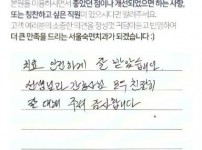 본원을 이용하시면서 좋았던 점이나 개선되었으면 하는 사항,
또는 칭찬하고 싶은 직원이 있으시다면 알려주세요.
고객 여러분의 소중한 의견을 정성껏 귀담아듣고 반영하여
더 큰 만족을 드리는 서울숙면치과가 되겠습니다 :)
치료 안전하게 잘 받았습니다
선생님과 간호사님 모두 친절히
잘 대해 주셔 감사합니다